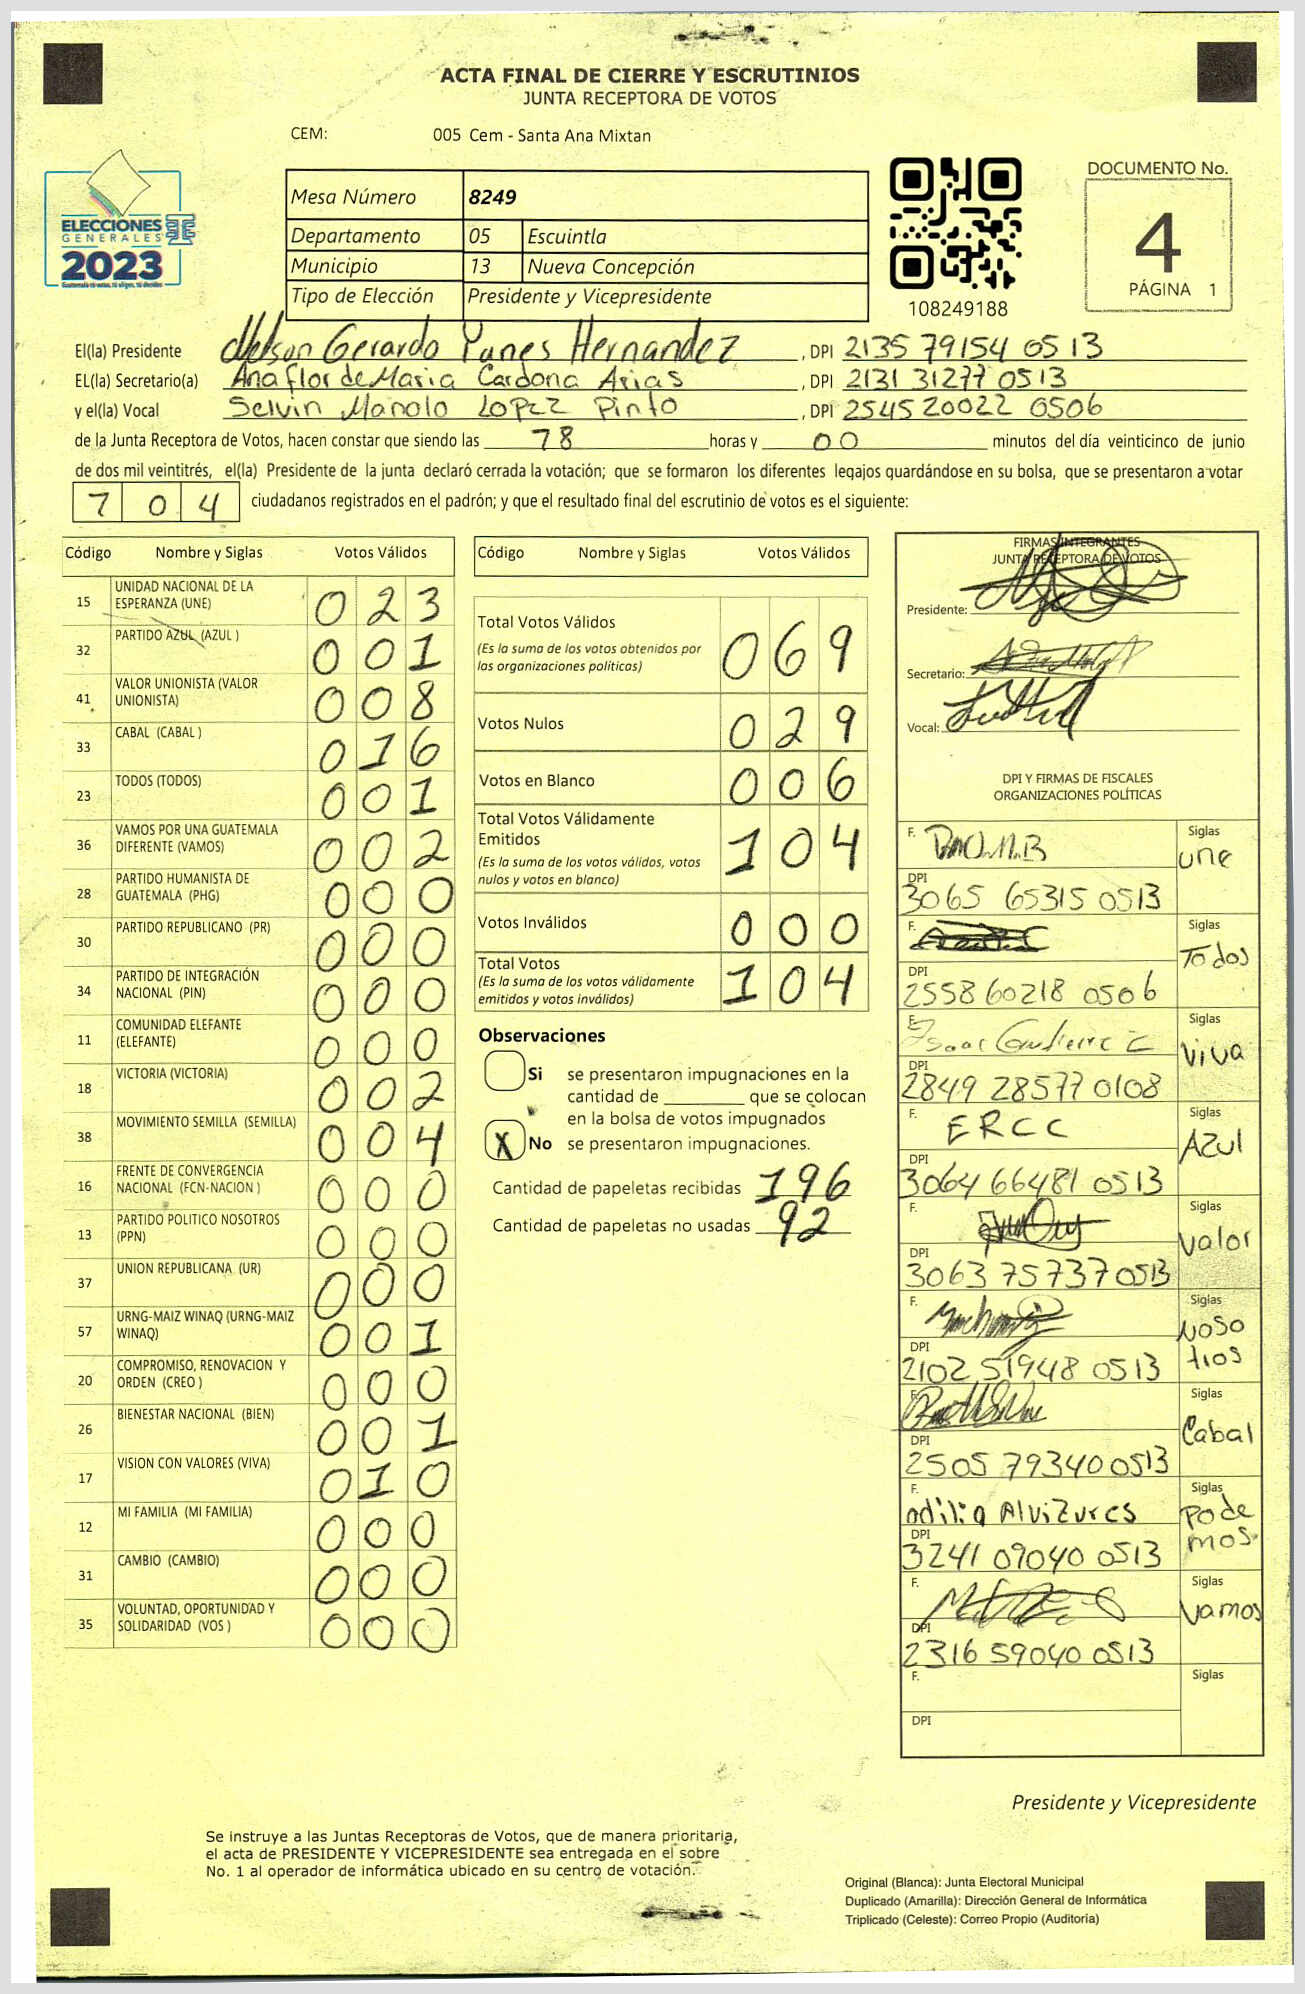 ACTA FINAL DE CIERRE Y ESCRUTINIOS
JUNTA RECEPTORA DE VOTOS
CEM: 005 Cem - Santa Ana Mixtan
ELECCIONES
GENERALES
2023
Guatemala tú votas, tú eliges, tú decides
Mesa Número 8249
Departamento 05 Escuintla
Municipio 13 Nueva Concepción
Tipo de Elección Presidente y Vicepresidente
108249188
DOCUMENTO No.
4
PÁGINA 1
El(la) Presidente Nelson Gerardo Yanes Hernandez, DPI 2135 79154 0513
EL(la) Secretario(a) Ana flor de Maria Cardona Arias, DPI 2131 31277 0513
y el(la) Vocal Selvin Manolo Lopez Pinto, DPI 2545 20022 0506
de la Junta Receptora de Votos, hacen constar que siendo las 18 horas y 00 minutos del día veinticinco de junio
de dos mil veintitrés, el(la) Presidente de la junta declaró cerrada la votación; que se formaron los diferentes legajos guardándose en su bolsa, que se presentaron a votar
104 ciudadanos registrados en el padrón; y que el resultado final del escrutinio de votos es el siguiente:
Código Nombre y Siglas Votos Válidos
15 UNIDAD NACIONAL DE LA ESPERANZA (UNE) 023
32 PARTIDO AZUL (AZUL ) 001
41 VALOR UNIONISTA (VALOR UNIONISTA) 008
33 CABAL (CABAL ) 016
23 TODOS (TODOS) 001
36 VAMOS POR UNA GUATEMALA DIFERENTE (VAMOS) 002
28 PARTIDO HUMANISTA DE GUATEMALA (PHG) 000
30 PARTIDO REPUBLICANO (PR) 000
34 PARTIDO DE INTEGRACIÓN NACIONAL (PIN) 000
11 COMUNIDAD ELEFANTE (ELEFANTE) 000
18 VICTORIA (VICTORIA) 002
38 MOVIMIENTO SEMILLA (SEMILLA) 004
16 FRENTE DE CONVERGENCIA NACIONAL (FCN-NACION ) 000
13 PARTIDO POLITICO NOSOTROS (PPN) 000
37 UNION REPUBLICANA (UR) 000
57 URNG-MAIZ WINAQ (URNG-MAIZ WINAQ) 001
20 COMPROMISO, RENOVACION Y ORDEN (CREO ) 000
26 BIENESTAR NACIONAL (BIEN) 001
17 VISION CON VALORES (VIVA) 010
12 MI FAMILIA (MI FAMILIA) 000
31 CAMBIO (CAMBIO) 000
35 VOLUNTAD, OPORTUNIDAD Y SOLIDARIDAD (VOS ) 000
Código Nombre y Siglas Votos Válidos
Total Votos Válidos 069
(Es la suma de los votos obtenidos por
las organizaciones políticas)
Votos Nulos 029
Votos en Blanco 006
Total Votos Válidamente
Emitidos 104
(Es la suma de los votos válidos, votos
nulos y votos en blanco)
Votos Inválidos 000
Total Votos 104
(Es la suma de los votos válidamente
emitidos y votos inválidos)
Observaciones
Si se presentaron impugnaciones en la
cantidad de ________ que se colocan
en la bolsa de votos impugnados
X No se presentaron impugnaciones.
Cantidad de papeletas recibidas 196
Cantidad de papeletas no usadas 92
FIRMAS INTEGRANTES
JUNTA RECEPTORA DE VOTOS
Presidente:
Secretario:
Vocal:
DPI Y FIRMAS DE FISCALES
ORGANIZACIONES POLÍTICAS
F. Siglas une
DPI 3065 65315 0513
F. Siglas Todos
DPI 2558 60218 0506
F. Isaac Gutierrez Siglas Viva
DPI 2849 28577 0108
F. ERCC Siglas AZul
DPI 3064 66481 0513
F. Siglas valor
DPI 3063 75737 0513
F. Siglas Nosotros
DPI 2102 51948 0513
F. Siglas Cabal
DPI 2505 79340 0513
F. odilia AlviZures Siglas Podemos
DPI 3241 09040 0513
F. Siglas Vamos
DPI 2316 59040 0513
F. Siglas
DPI
Presidente y Vicepresidente
Se instruye a las Juntas Receptoras de Votos, que de manera prioritaria,
el acta de PRESIDENTE Y VICEPRESIDENTE sea entregada en el sobre
No. 1 al operador de informática ubicado en su centro de votación.
Original (Blanca): Junta Electoral Municipal
Duplicado (Amarilla): Dirección General de Informática
Triplicado (Celeste): Correo Propio (Auditoría)